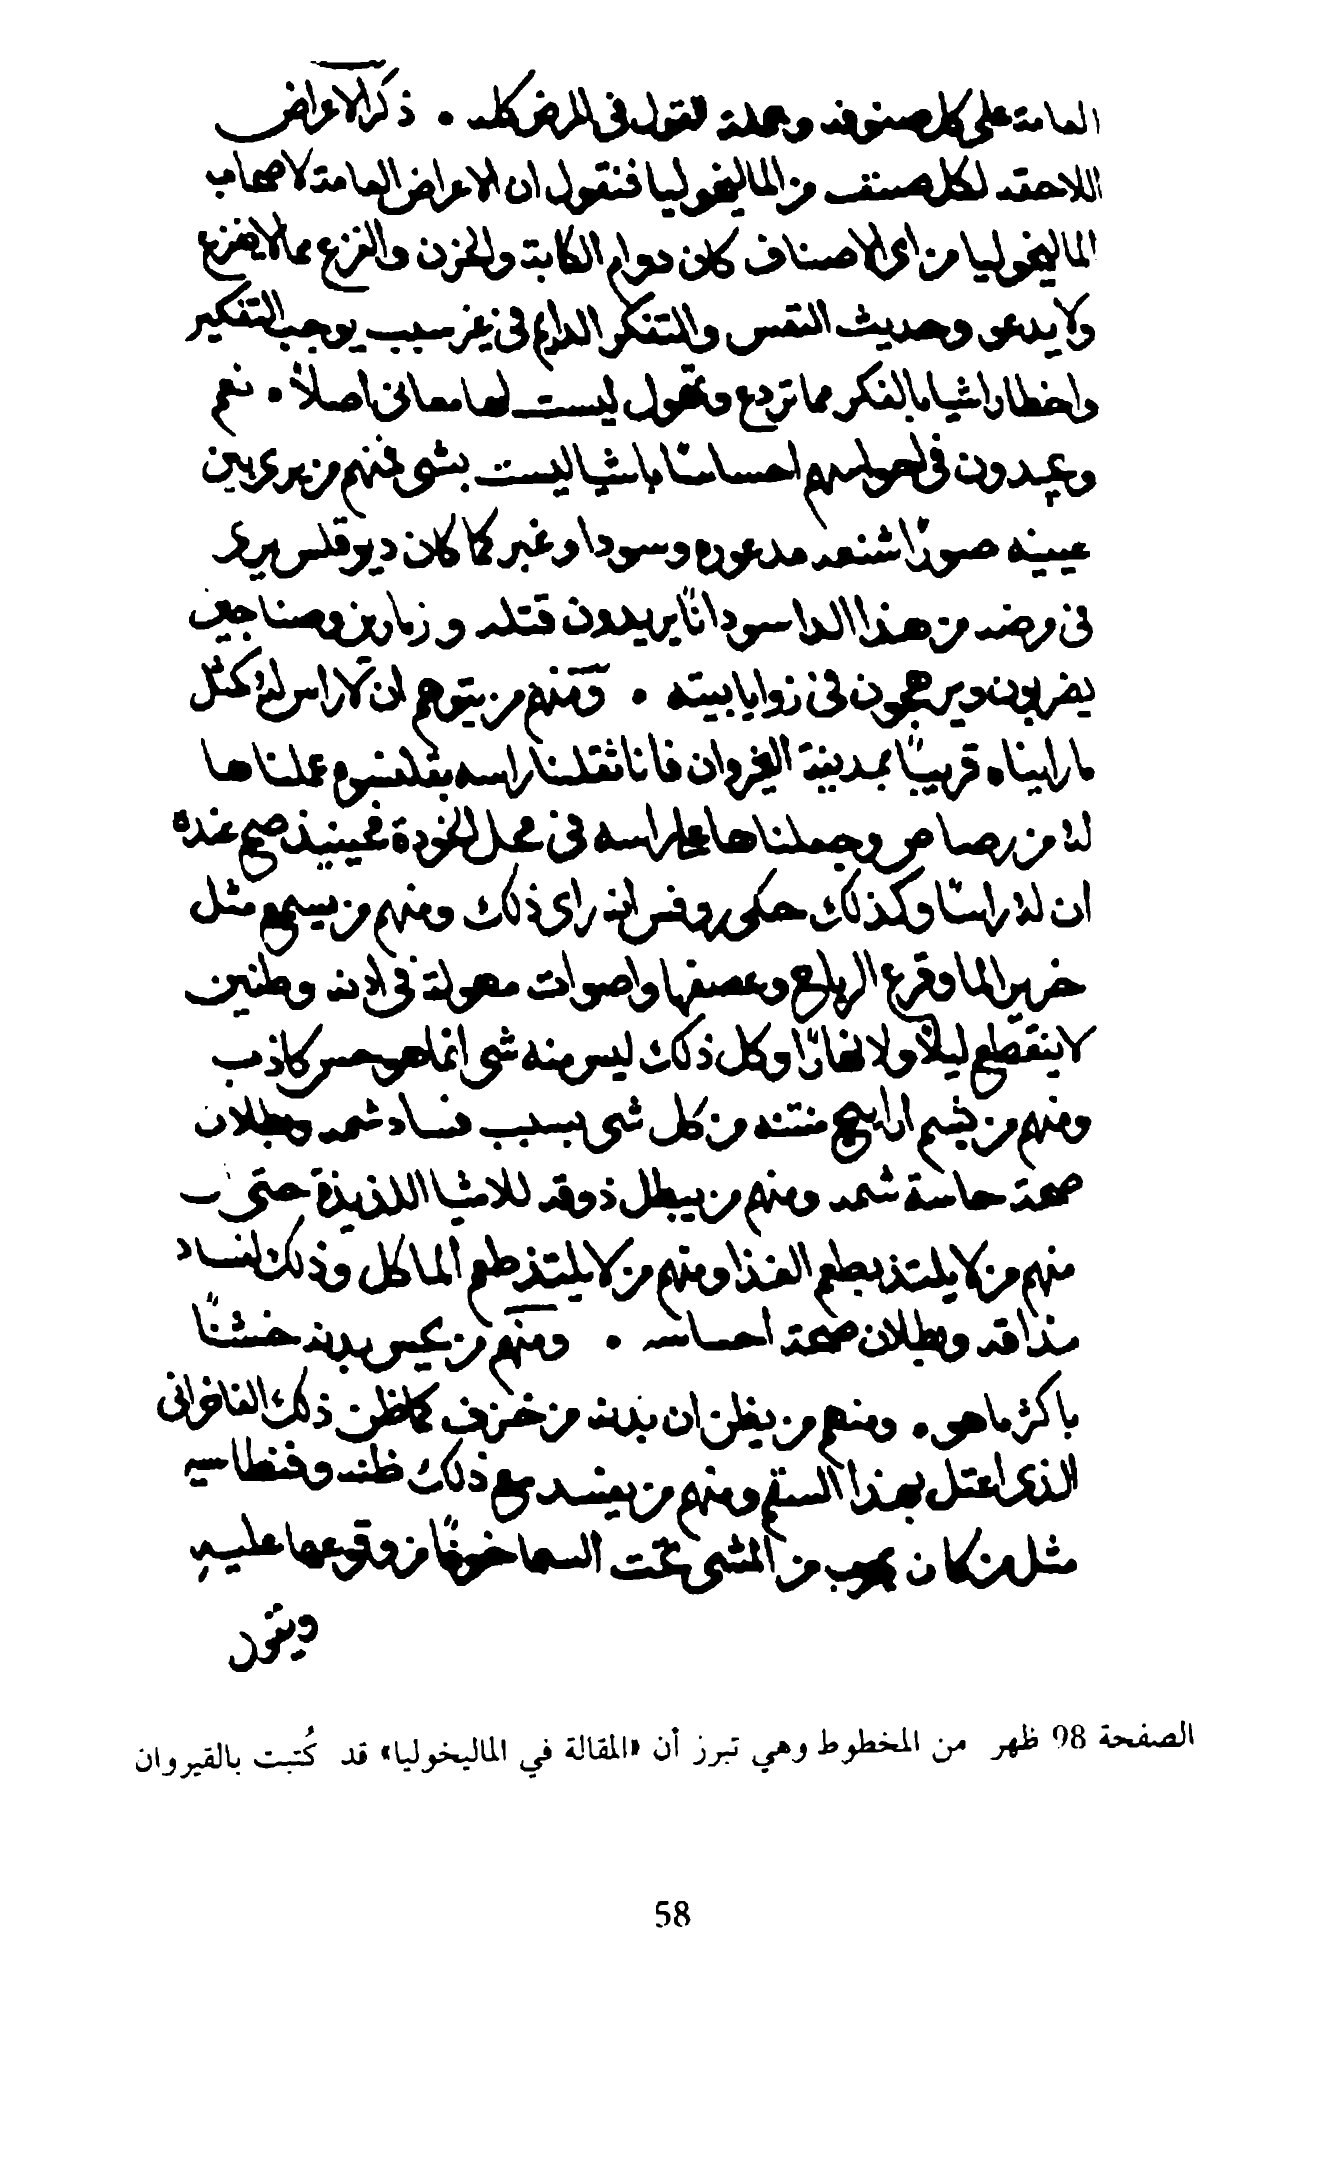 العامة على كل صنوفه وجملة القول فى المرض كله . ذكر الاعراض
اللاحقه لكل صنف من الماليخوليا فنقول ان الاعراض العامة لاصحاب
الماليخوليا من اى الاصناف كان دوام الكابة والحزن والفزع مما لا يفزع
ولا يدعو وحديث النفس والتفكر الدايم فى غير سبب يوجب التفكير
واخطار اشيا بالفكر مما تردع وتهول ليست لها معانى اصلاً . نعم
ويجدون فى احواسهم احساسًا باشيا ليست بشى فمنهم من يرى بين
عينيه صورًا شنعه مدعوره وسودا وغبر كما كان ديوقلس يرى
فى مرضه من هذا الدا سودانًا يريدون قتله وزمارين وصناجين
يضربون ويرهجون فى زوايا بيته . ومنهم من يتوهم ان لا راس له كمثل
ما رايناه قريبًا بمدينة القيروان فانا ثقلنا راسه بقلنسوه عملناها
له من رصاص وجعلناها على راسه فى محل الخودة فحينيذ صح عنده
ان له راسًا وكذلك حكى روفس انه راى ذلك ومنهم من يسمع مثل
خرير الما وقرع الرياح وعصفها واصوات مهولة فى اذنه وطنين
لا ينقطع ليلاً ولا نهارًا وكل ذلك ليس منه شى انما هو حس كاذب
ومنهم من يشم ارايح منتنه من كل شى بسبب فساد شمه وبطلان
صحة حاسة شمه ومنهم من يبطل ذوقه للاشيا اللذيذة حتى
منهم من لا يلتذ بطعم الغذا ومنهم من لا يلتذ طعم الماكل وذلك لفساد
مذاقه وبطلان صحة احساسه . ومنهم من يحس بدنه خشنًا
باكثر ما هو . ومنهم من يظن ان بدنه من خزف كما ظن ذلك الفاخرانى
الذى اعتل بهذا السقم ومنهم من يفسد مع ذلك ظنه وفنطاسيه
مثل من كان يهرب من المشى تحت السما خوفًا من وقوعها عليه
ويقول
الصفحة 98 ظهر من المخطوط وهي تبرز أن «المقالة في الماليخوليا» قد كُتبت بالقيروان
58